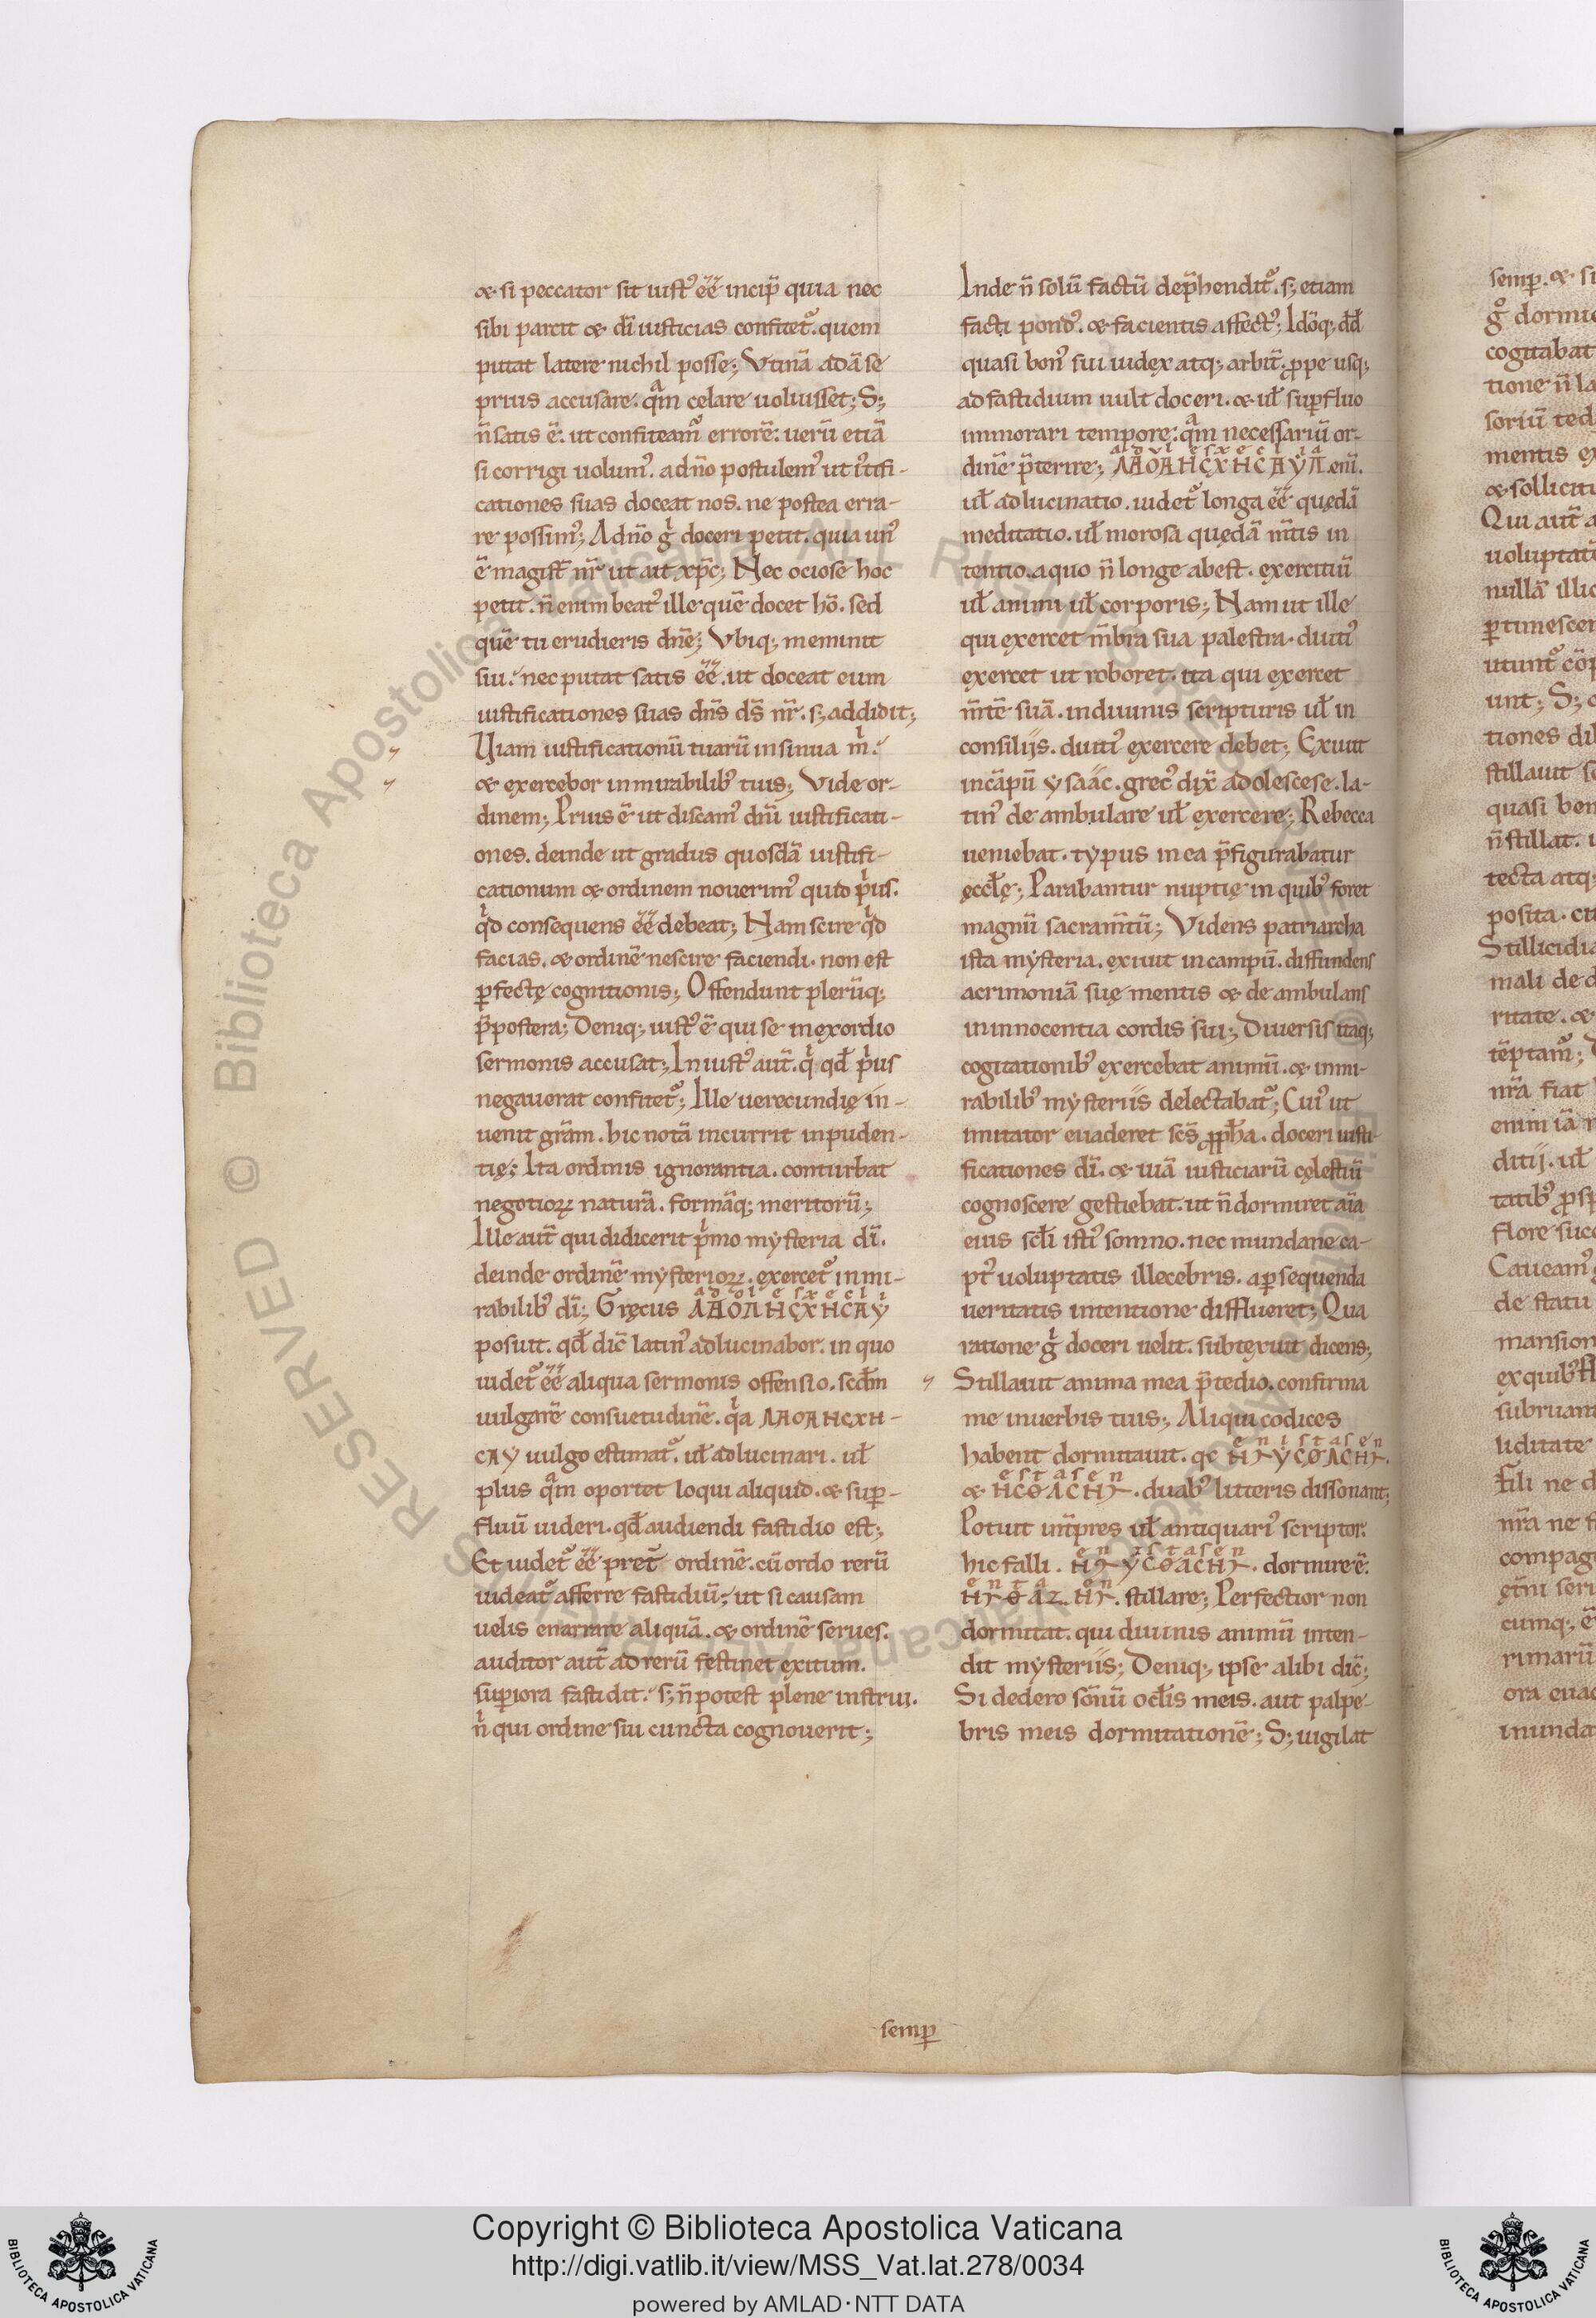 & si peccator sit iust᾽ ēē incip̄ quia nec
sibi parcit & dī iusticias confitet᾽. quem
putat latere nichil posse; Vtinā adā se
prius accusare. quam celare uoluisset; S;
n̄ satis ē. ut confiteam᾽ errorē. uerū etiā
si corrigi uolum᾽. a dn̄o postulem᾽ ut
cationes suas doceat nos. ne postea erra-
re possim᾽; A dn̄o g̊ doceri petit. quia un᾽
ē magist̄ nr̄ ut ait xp̄c; Nec ociose hoc
petit. n̄ enim beat᾽ ille quē docet hō. sed
quē tu erudieris dn̄e; Vbiq; meminit
sui. nec putat satis ēē. ut doceat eum
iustificationes suas dn̄s ds̄ nr̄. s; addidit;
Viam iustificationū tuarū insinua m̄.
& exercebor in mirabilib᾽ tuis; Vide or-
dinem; Prius ē ut discam᾽ dnī iustificati-
ones. deinde ut gradus quosdā iustifi-
cationum & ordinem nouerim᾽ quid p̄us.
qd consequens ēē debeat; Nam scire qd
facias. & ordinē nescire faciendi. non est
ꝑfectę cognitionis; Offendunt plerūq;
p̄postera; Deniq; iust᾽ ē qui se in exordio
sermonis accusat; Iniust᾽ aut̄. q̄ qđ p̄us
negauerat confitet᾽; Ille uerecundię in-
uenit grām. hic notā incurrit inpuden-
tię; Ita ordinis ignorantia. conturbat
negotioꝝ naturā. formāq; meritorū;
Ille aut̄ qui didicerit p̄mo mysteria dī.
deinde ordinē mysterioꝝ. exercet᾽ in mi-
rabilib᾽ dī; Gręcus ΛΔΟΛΗCΧΗCΑΥ
posuit. qđ dic̄ latin᾽ adlucinabor. in quo
uidet᾽ ēē aliqua sermonis offensio. scd̄m
uulgarē consuetudinē. qa ΛΔΟΛΗCΧΗ-
CΑΥ uulgo estimat᾽. uł adlucinari. uł
plus quam oportet loqui aliquid. & suꝑ-
fluū uideri. qđ audiendi fastidio est;
Et uidet᾽ ēē pret̄ ordinē. cū ordo rerū
uideat᾽ afferre fastidiū; ut si causam
uelis enarrare aliquā. & ordinē serues.
auditor aut̄ ad rerū festinet exitum.
suꝑiora fastidit. s; n̄ potest plene instrui.
n̄ qui ordine sui cuncta cognouerit;
Inde n̄ solū factū dep̄hendit᾽. s; etiam
facti pond᾽. & facientis affect᾽; Idōq; dđ
quasi bon᾽ sui iudex atq; arbit̄. ꝓpe usq;
ad fastidium uult doceri. & uł suꝑfluo
inmorari tempore. quam necessariū or-
dinē p̄terire; ΛΔΟΛΗCΧΗCΑΥΛ. enī.
uł adlucinatio. uidet᾽ longa ēē quędā
meditatio. uł morosa quędā m̄tis in
tentio. a quo n̄ longe abest. exercitiū
uł animi uł corporis; Nam ut ille
qui exercet m̄bra sua palestra. diuti᾽
exercet ut roboret. ita qui exercet
m̄tē suā. in diuinis scripturis uł in
consiliis. diuti᾽ exercere debet; Exiuit
in cāpū ysaac. grec᾽ dix̄ adolescese. la-
tin᾽ de ambulare uł exercere; Rebecca
ueniebat. typus in ea p̄figurabatur
ęccłę; Parabantur nuptię in quib᾽ foret
magnū sacram̄tū; Videns patriarcha
ista mysteria. exiuit in campū. diffundens
acrimoniā suę mentis & de ambulans
in innocentia cordis sui; Diuersis itaq;
cogitationib᾽ exercebat animū. & in mi-
rabilib᾽ mysteriis delectabat᾽; Cui᾽ ut
imitator euaderet scs̄ ꝓpħa. doceri iusti-
ficationes dī. & uiā iusticiarū cęlestiū
cognoscere gestiebat. ut n̄ dormiret aīa
eius scłi isti᾽ somno. nec mundane ca-
pt᾽ uoluptatis illecebris. a ꝑsequenda
ueritatis intentione difflueret; Qua
ratione g̊ doceri uelit. subtexuit dicens;
Stillauit anima mea p̄ tedio. confirma
me in uerbis tuis; Aliqui codices
habent dormitauit. qc ΗΝΥCΘΑCΗΝ.
& ΗCΘΑCΗΝ. duab᾽ litteris dissonant;
Potuit int̄pres uł antiquari᾽ scriptor.
hic falli. ΗΝΥCΘΑCΗΝ. dormire ē.
ΗΝΘΑΖ. ΗΝ. stillare; Perfectior non
dormitat. qui diuinis animū inten-
dit mysteriis; Deniq; ipse alibi dic̄;
Si dedero sōnū ocłis meis. aut palpe-
bris meis dormitationē; S; uigilat
semꝑ
semꝑ. & si
g̊ dormi
cogitabat
tione n̄ la
soriū ted
mentis ex
& solliciti
Qui aut̄ a
uoluptati
nullā illic
ꝑtimescer
utunt᾽ cōp
unt; S; c
tiones dil
stillauit s
quasi bon
n̄ stillat. i
tecta atq;
posita. cu
Stillicidia
mali de d
ritate. &
tēptam᾽;
nr̄a fiat
enim iā n
ditij. uł
tatib᾽ ꝓsp
flore succ
Caueam᾽
de statu
mansion
ex quib᾽ fl
subruant
liditate
Fili ne d
nr̄a ne f
compag
ęt̄ni seri
cumq; ē
rimarū
ora euac
inunda
Copyright © Biblioteca Apostolica Vaticana
http://digi.vatlib.it/view/MSS_Vat.lat.278/0034
powered by AMLAD·NTT DATA
BIBLIOTECA APOSTOLICA VATICANA
BIBLIOTECA APOSTOLICA VATICANA